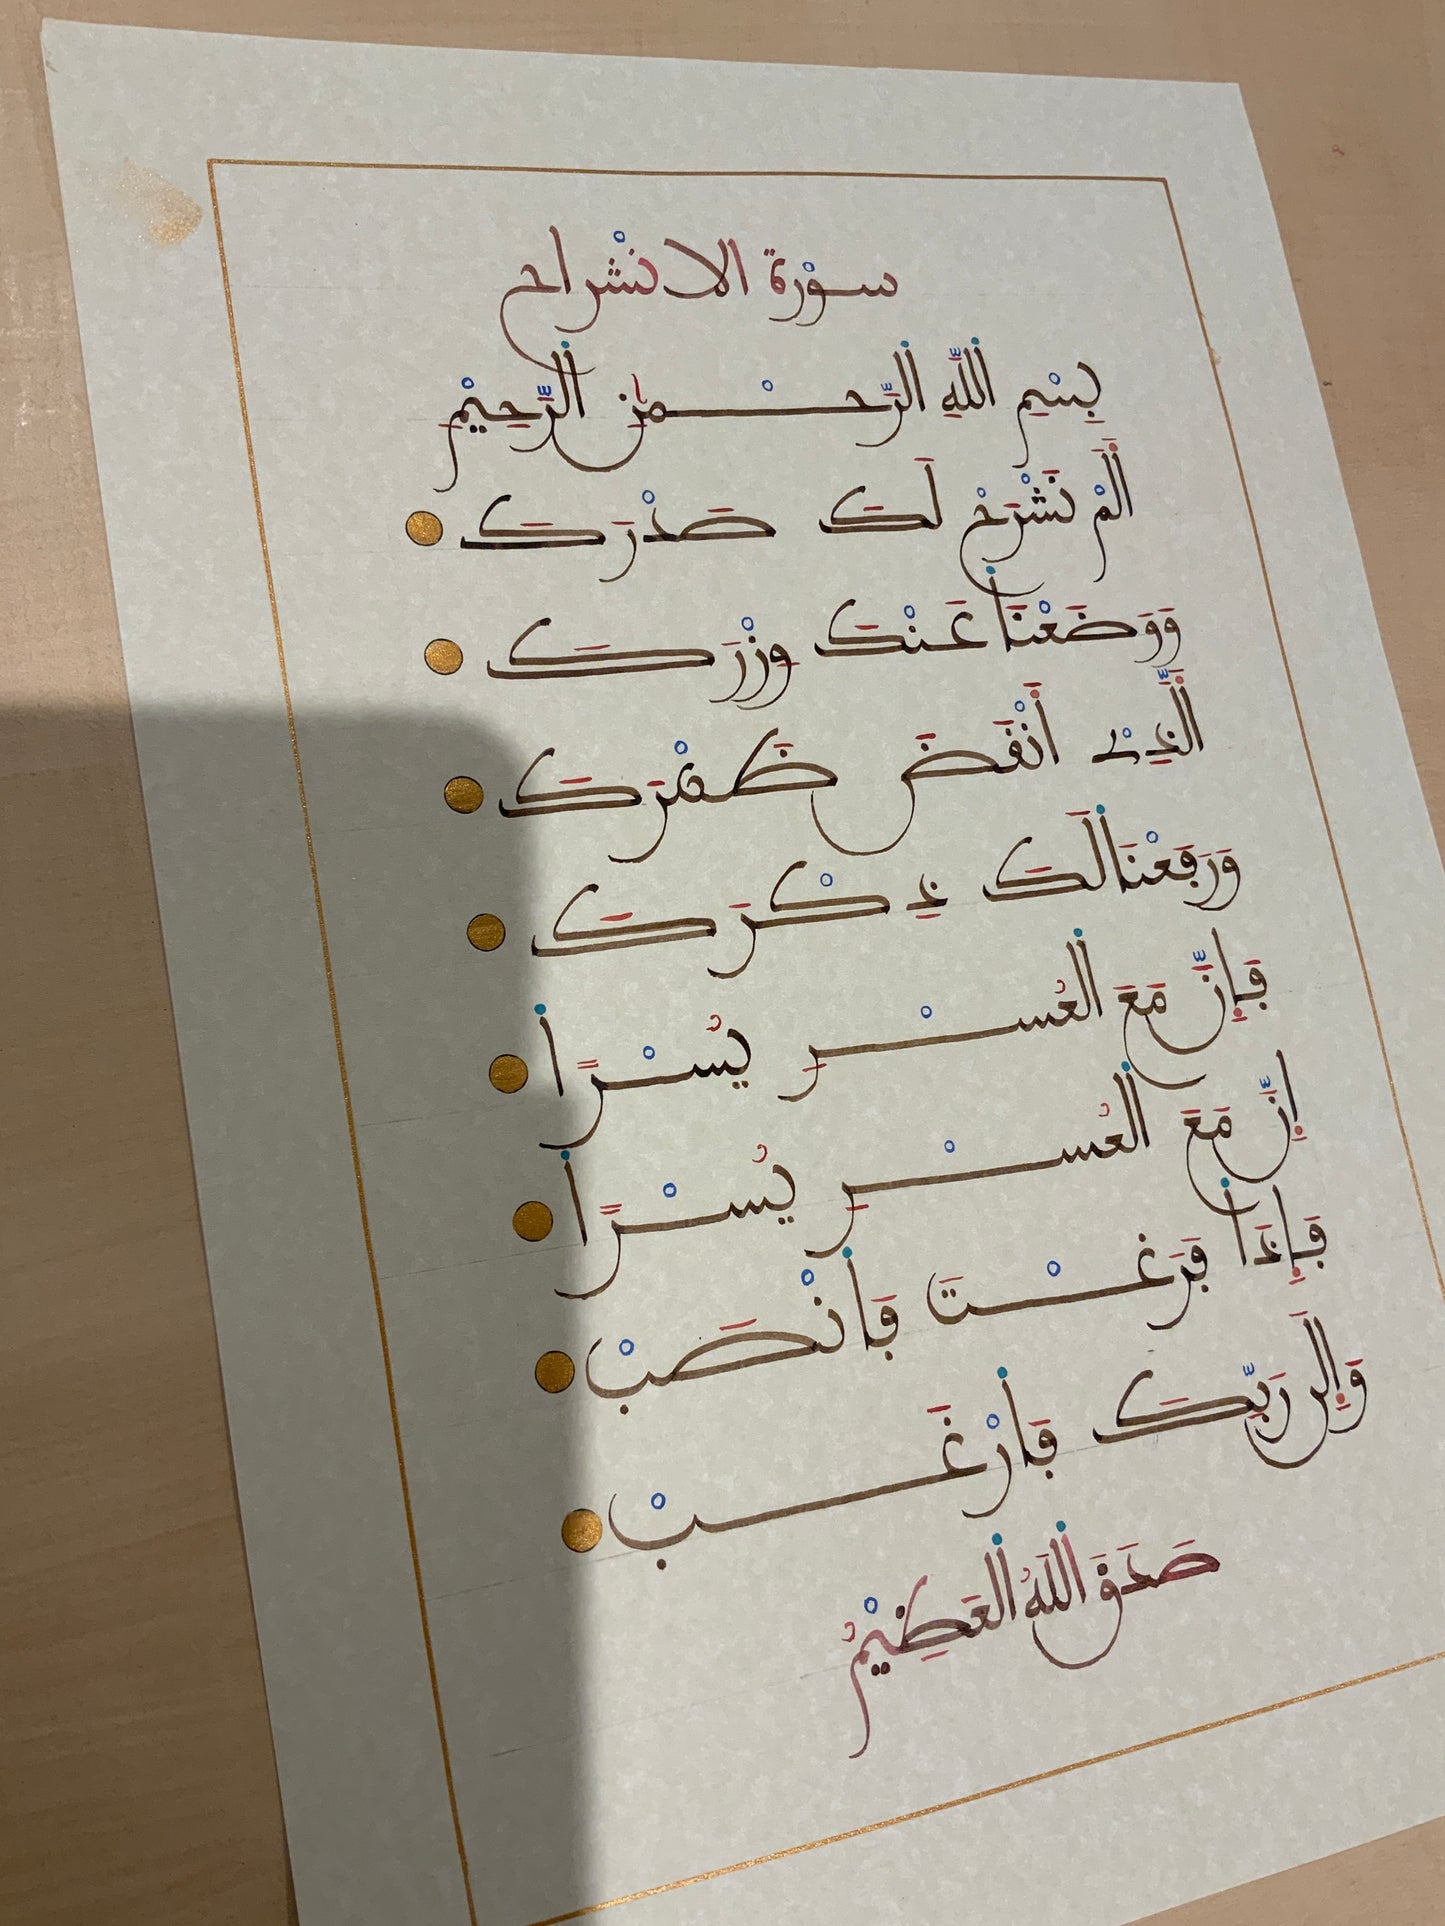 سوْرة الانْشراح
بِسْمِ اللَّهِ الرَّحْمٰنِ الرَّحِيْمِ
أَلَمْ نَشْرَحْ لَكَ صَدْرَكَ
وَوَضَعْنَا عَنْكَ وِزْرَكَ
الَّذِىْ أَنْقَضَ ظَهْرَكَ
وَرَفَعْنَا لَكَ ذِكْرَكَ
فَإِنَّ مَعَ الْعُسْرِ يُسْرًا
إِنَّ مَعَ الْعُسْرِ يُسْرًا
فَإِذَا فَرَغْتَ فَانْصَبْ
وَإِلَى رَبِّكَ فَارْغَبْ
صَدَقَ اللَهُ العَظِيْمُ